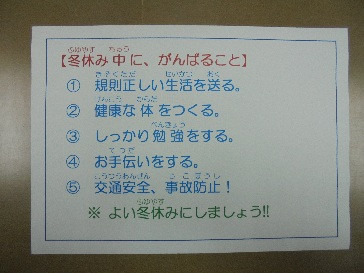 【冬休み中に、がんばること】
① 規則正しい生活を送る。
② 健康な体をつくる。
③ しっかり勉強をする。
④ お手伝いをする。
⑤ 交通安全、事故防止！
※ よい冬休みにしましょう!!